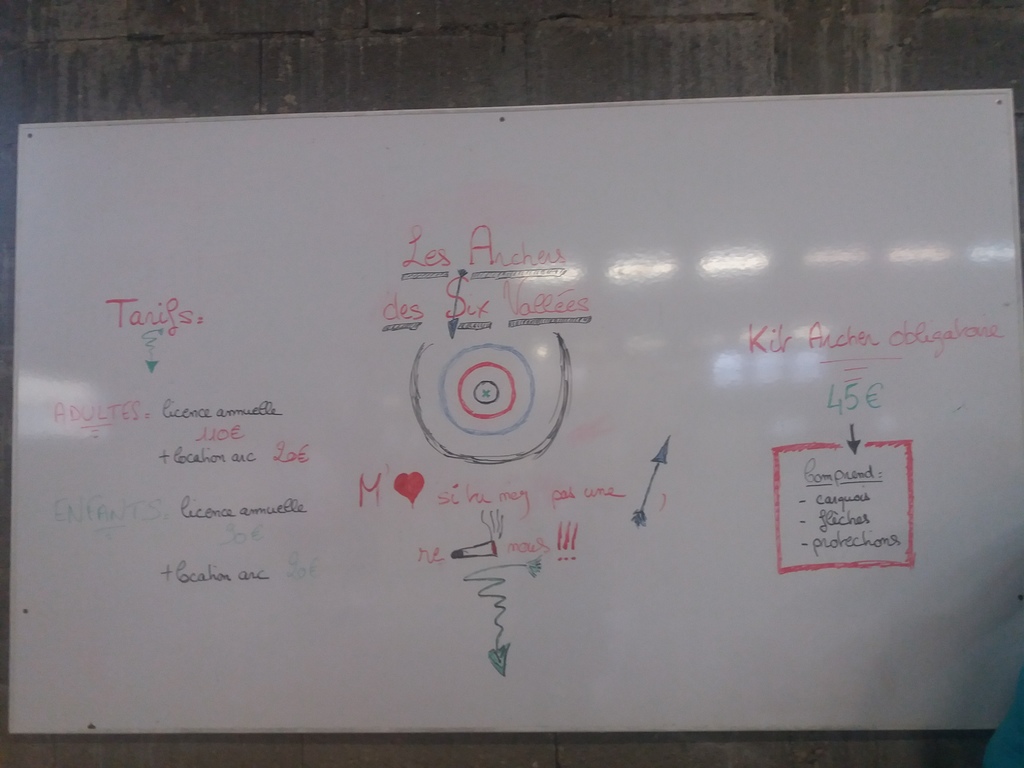 Les Archers
des Six Vallées
Tarifs:
ADULTES: licence annuelle
110€
+ location arc 20€
ENFANTS: licence annuelle
90€
+ location arc 20€
M' si tu n'es pas une ,
re nous !!!
Kit Archer obligatoire
45€
Comprend:
- carquois
- flèches
- protections